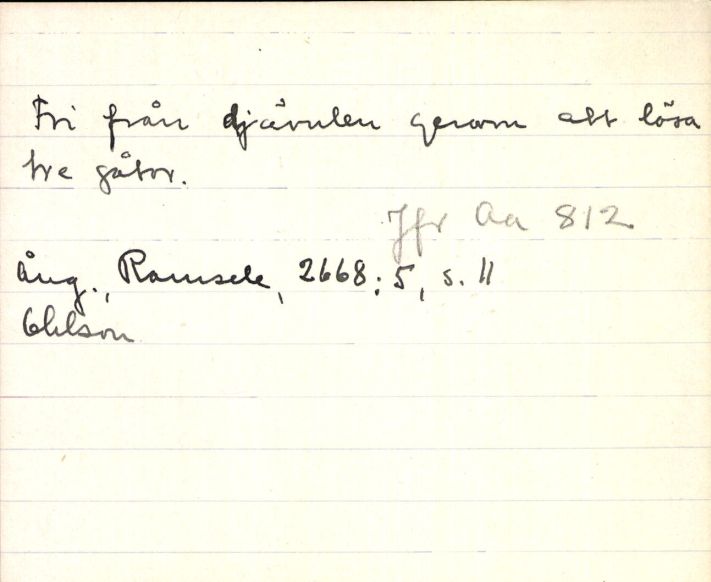 Fri från djävulen genom att lösa
tre gåtor.
Jfr Aa 812
Ång., Ramsele, 2668:5, s. 11
Ohlson